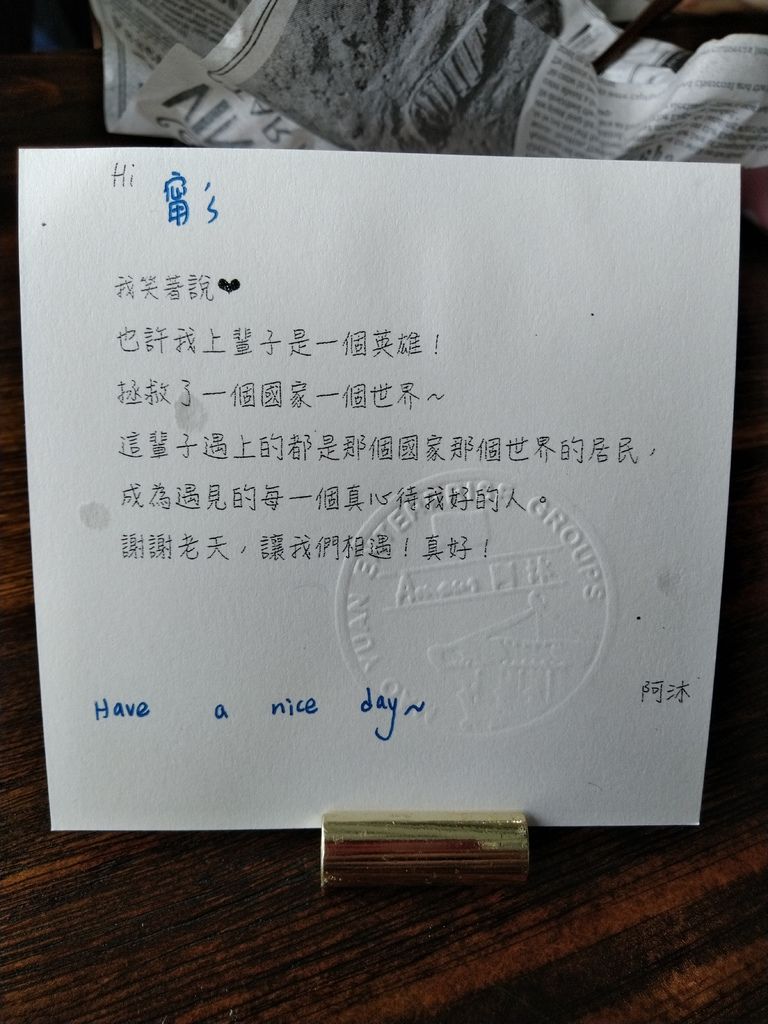 Hi 甯's
我笑著說♥
也許我上輩子是一個英雄！
拯救了一個國家一個世界～
這輩子遇上的都是那個國家那個世界的居民，
成為遇見的每一個真心待我好的人。
謝謝老天，讓我們相遇！真好！
YUAN ENTERPRISE GROUPS
Have a nice day~
阿沐